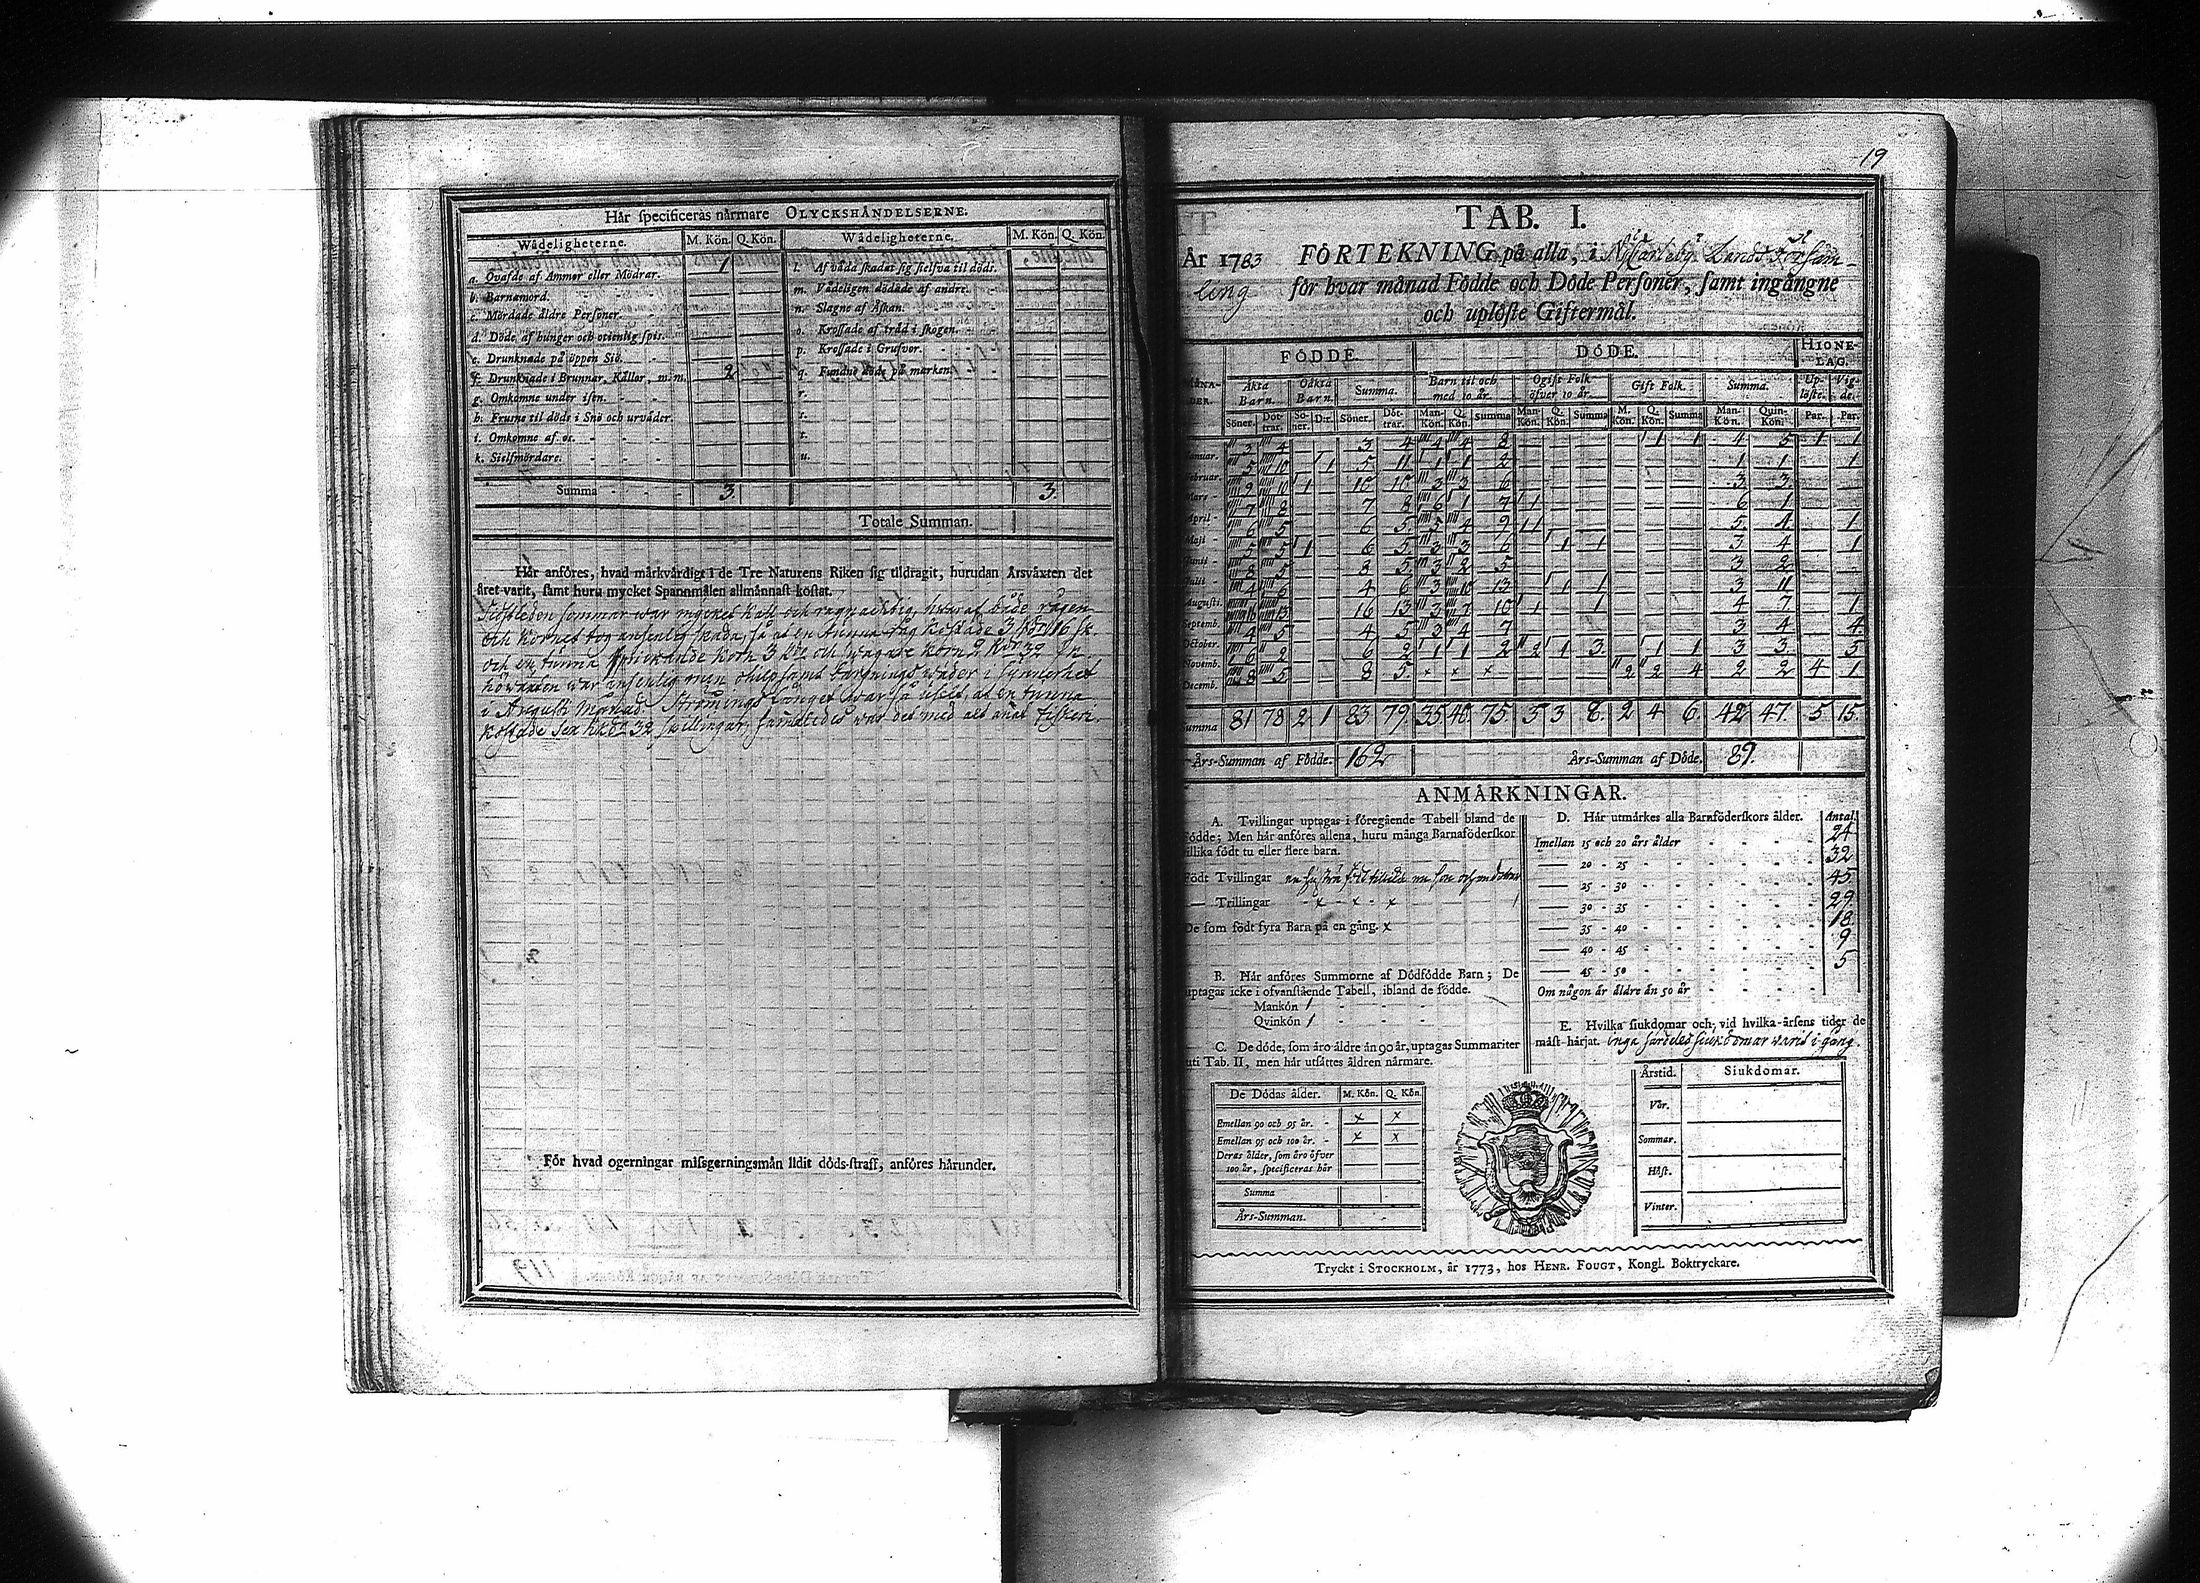 Hår ſpecificeras nårmare OLYCKSHÅNDELSERNE.
Wådeligheterne. M. Kón. Q. Kón. Wådeligheterne. M. Kón. Q. Kón.
a. Qvafde af Ammor eller Mödrar. 1 l. Af våda ſkadat ſig ſielfva til döds.
b. Barnamord. m. Vådeligen dödade af andre.
c. Mördade åldre Perſoner. n. Slagne af Åſkan.
d. Döde af hunger och otienlig ſpis. o. Kroſſade af tråd i ſkogen.
e. Drunknade på öppen Siö. p. Kroſſade i Grufvor.
f. Drunknade i Brunnar, Kållor, m.m. 2 q. Fundne döde på marken.
g. Omkomne under iſen. r.
h. Fruſne til döds i Snö och urvåder. s.
i. Omkomne af os. t.
k. Sielfmördare. u.
Summa 3. 3.
Totale Summan.
Hår anföres, hvad mårkvårdigt i de Tre Naturens Riken ſig tildragit, hurudan Årsvåxten det
året varit, ſamt huru mycket Spannmålen allmånnaſt koſtat.
ſommar war mycket kall och regnachtig, hwaraf både rågen
och kornet tog anſenlig ſkada, ſå at en Tunna råg koſtade 3 16 ſk.
och en tunna korn 3 och korn 2 32
war anſenlig men wåder i ſynnerhet
i Auguſti Månad. Strömings fånget war ſå at en tunna
koſtade 32 ſkillingar, war det med alt annat fiſkeri.
För hvad ogerningar miſsgerningsmån lidit döds-ſtraff, anföres hårunder.
19
TAB. I.
År 1783 FÓRTEKNING på alla, i Lands Förſam-
ling för hvar månad Födde och Döde Perſoner, ſamt ingångne
och uplöſte Giftermål.
FÓDDE. DÓDE. HIONE-
LAG.
Åkta Barn. Oåkta Barn. Summa. Barn til och med 10 år. Ogift Folk öfver 10 år. Gift Folk. Summa. Up-löſte. Vig-de.
Söner. Döt-trar. Sö-ner. D:r. Söner. Döt-trar. Man-Kön. Q. Kön. Summa Man-Kön. Q. Kön. Summa M. Kön. Q. Kön. Summa Man-Kön. Quin-Kön. Par. Par.
Januar. 3 4 3 4 4 4 8 1 1 4 5 1 1
Februar. 5 10 1 5 11 1 1 2 1 1 1
Mars 9 10 1 10 10 3 3 6 3 3
April 7 8 7 8 6 1 7 6 1
Maji 6 5 6 5 5 4 9 5 4 1
Junii 5 5 1 6 5 3 3 6 1 1 3 4 1
Julii 8 5 8 5 3 2 5 3 2
Auguſti. 4 6 4 6 3 10 13 1 1 3 11
Septemb. 16 13 16 13 3 7 10 1 1 4 7 1
October. 4 5 4 5 3 4 7 3 4 4
Novemb. 6 2 6 2 1 1 2 2 1 3 1 1 3 3 5
Decemb. 8 5 8 5 x x x 2 2 4 2 2 4 1
Summa 81 78 2 1 83 79 35 40 75 5 3 8 2 4 6 42 47 5 15
Års-Summan af Födde. 162 Års-Summan af Döde. 89.
ANMÅRKNINGAR.
A. Tvillingar uptagas i föregående Tabell bland de
födde; Men hår anföres allena, huru många Barnaföderſkor
tillika födt tu eller flere barn.
Födt Tvillingar en huſtru födt
— Trillingar x x x
De ſom födt fyra Barn på en gång. x
B. Hår anföres Summorne af Dödfödde Barn; De
uptagas icke i ofvanſtående Tabell, ibland de födde.
Mankön 1
Qvinkön 1
C. De döde, ſom åro åldre ån 90 år, uptagas Summariter
uti Tab. II, men hår utſåttes åldren nårmare.
De Dödas ålder. M. Kön. Q. Kön.
Emellan 90 och 95 år. x x
Emellan 95 och 100 år. x x
Deras ålder, ſom åro öfver
100 år, ſpecificeras hår
Summa
Års-Summan.
D. Hår utmårkes alla Barnföderſkors ålder. Antal
Imellan 15 och 20 års ålder 24
20 - 25 32
25 - 30 45
30 - 35 29
35 - 40 18
40 - 45 9
45 - 50 5
Om någon år åldre ån 50 år
E. Hvilka ſiukdomar och, vid hvilka årſens tider de
måſt hårjat. inga ſårdeles ſiukdomar warit i gång.
Årstid. Siukdomar.
Vår.
Sommar.
Höſt.
Vinter.
Tryckt i STOCKHOLM, år 1773, hos HENR. FOUGT, Kongl. Boktryckare.